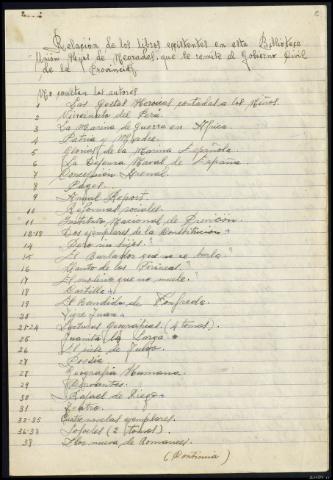 Relación de los libros existentes en esta Biblioteca
Unión Hijos de Morados, que le remite al Gobierno Civil
de la Provincia
No constan los autores
1 Las Gestas Heroicas contadas a los Niños.
2 Virreinato del Perú
3 La Marina de Guerra en África
4 Patria y Madre.
5 Glorias de la Marina Española
6 La Defensa Naval de España
7 Concepción Arenal
8 Pages
9 Anual Report.
10 Reformas sociales.
11 Instituto Nacional de Previsión.
12-13 Dos ejemplares de la Constitución
14 Pero sin hijos"
15 El Burlador que no se burla"
16 Canto de los
17 El molino que no muele"
18 Castilla
19 El Bandido de
20 Tigre Juan
21-24 Lecturas Geográficas (4 tomos).
25 Juanita la Larga
26 El siete de Julio.
27 Poesía
28 Geografía Humana.
29
30 Rafael de Riego
31 Teatro.
32-35 Cuatro novelas ejemplares.
36-37 Sófocles (2 tomos)
38 Flor nueva de Romances.
(Continúa)